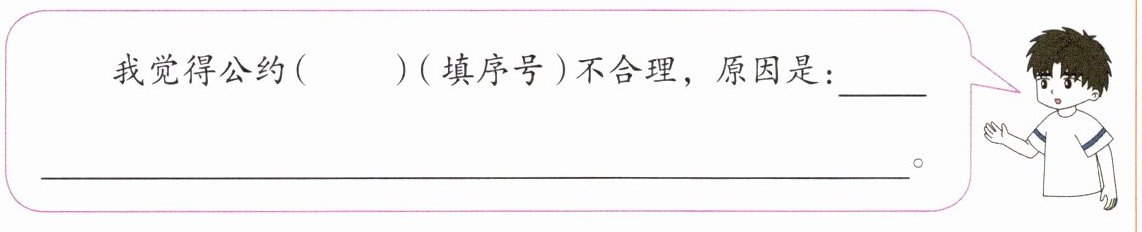 我觉得公约(  )(填序号)不合理，原因是：
。